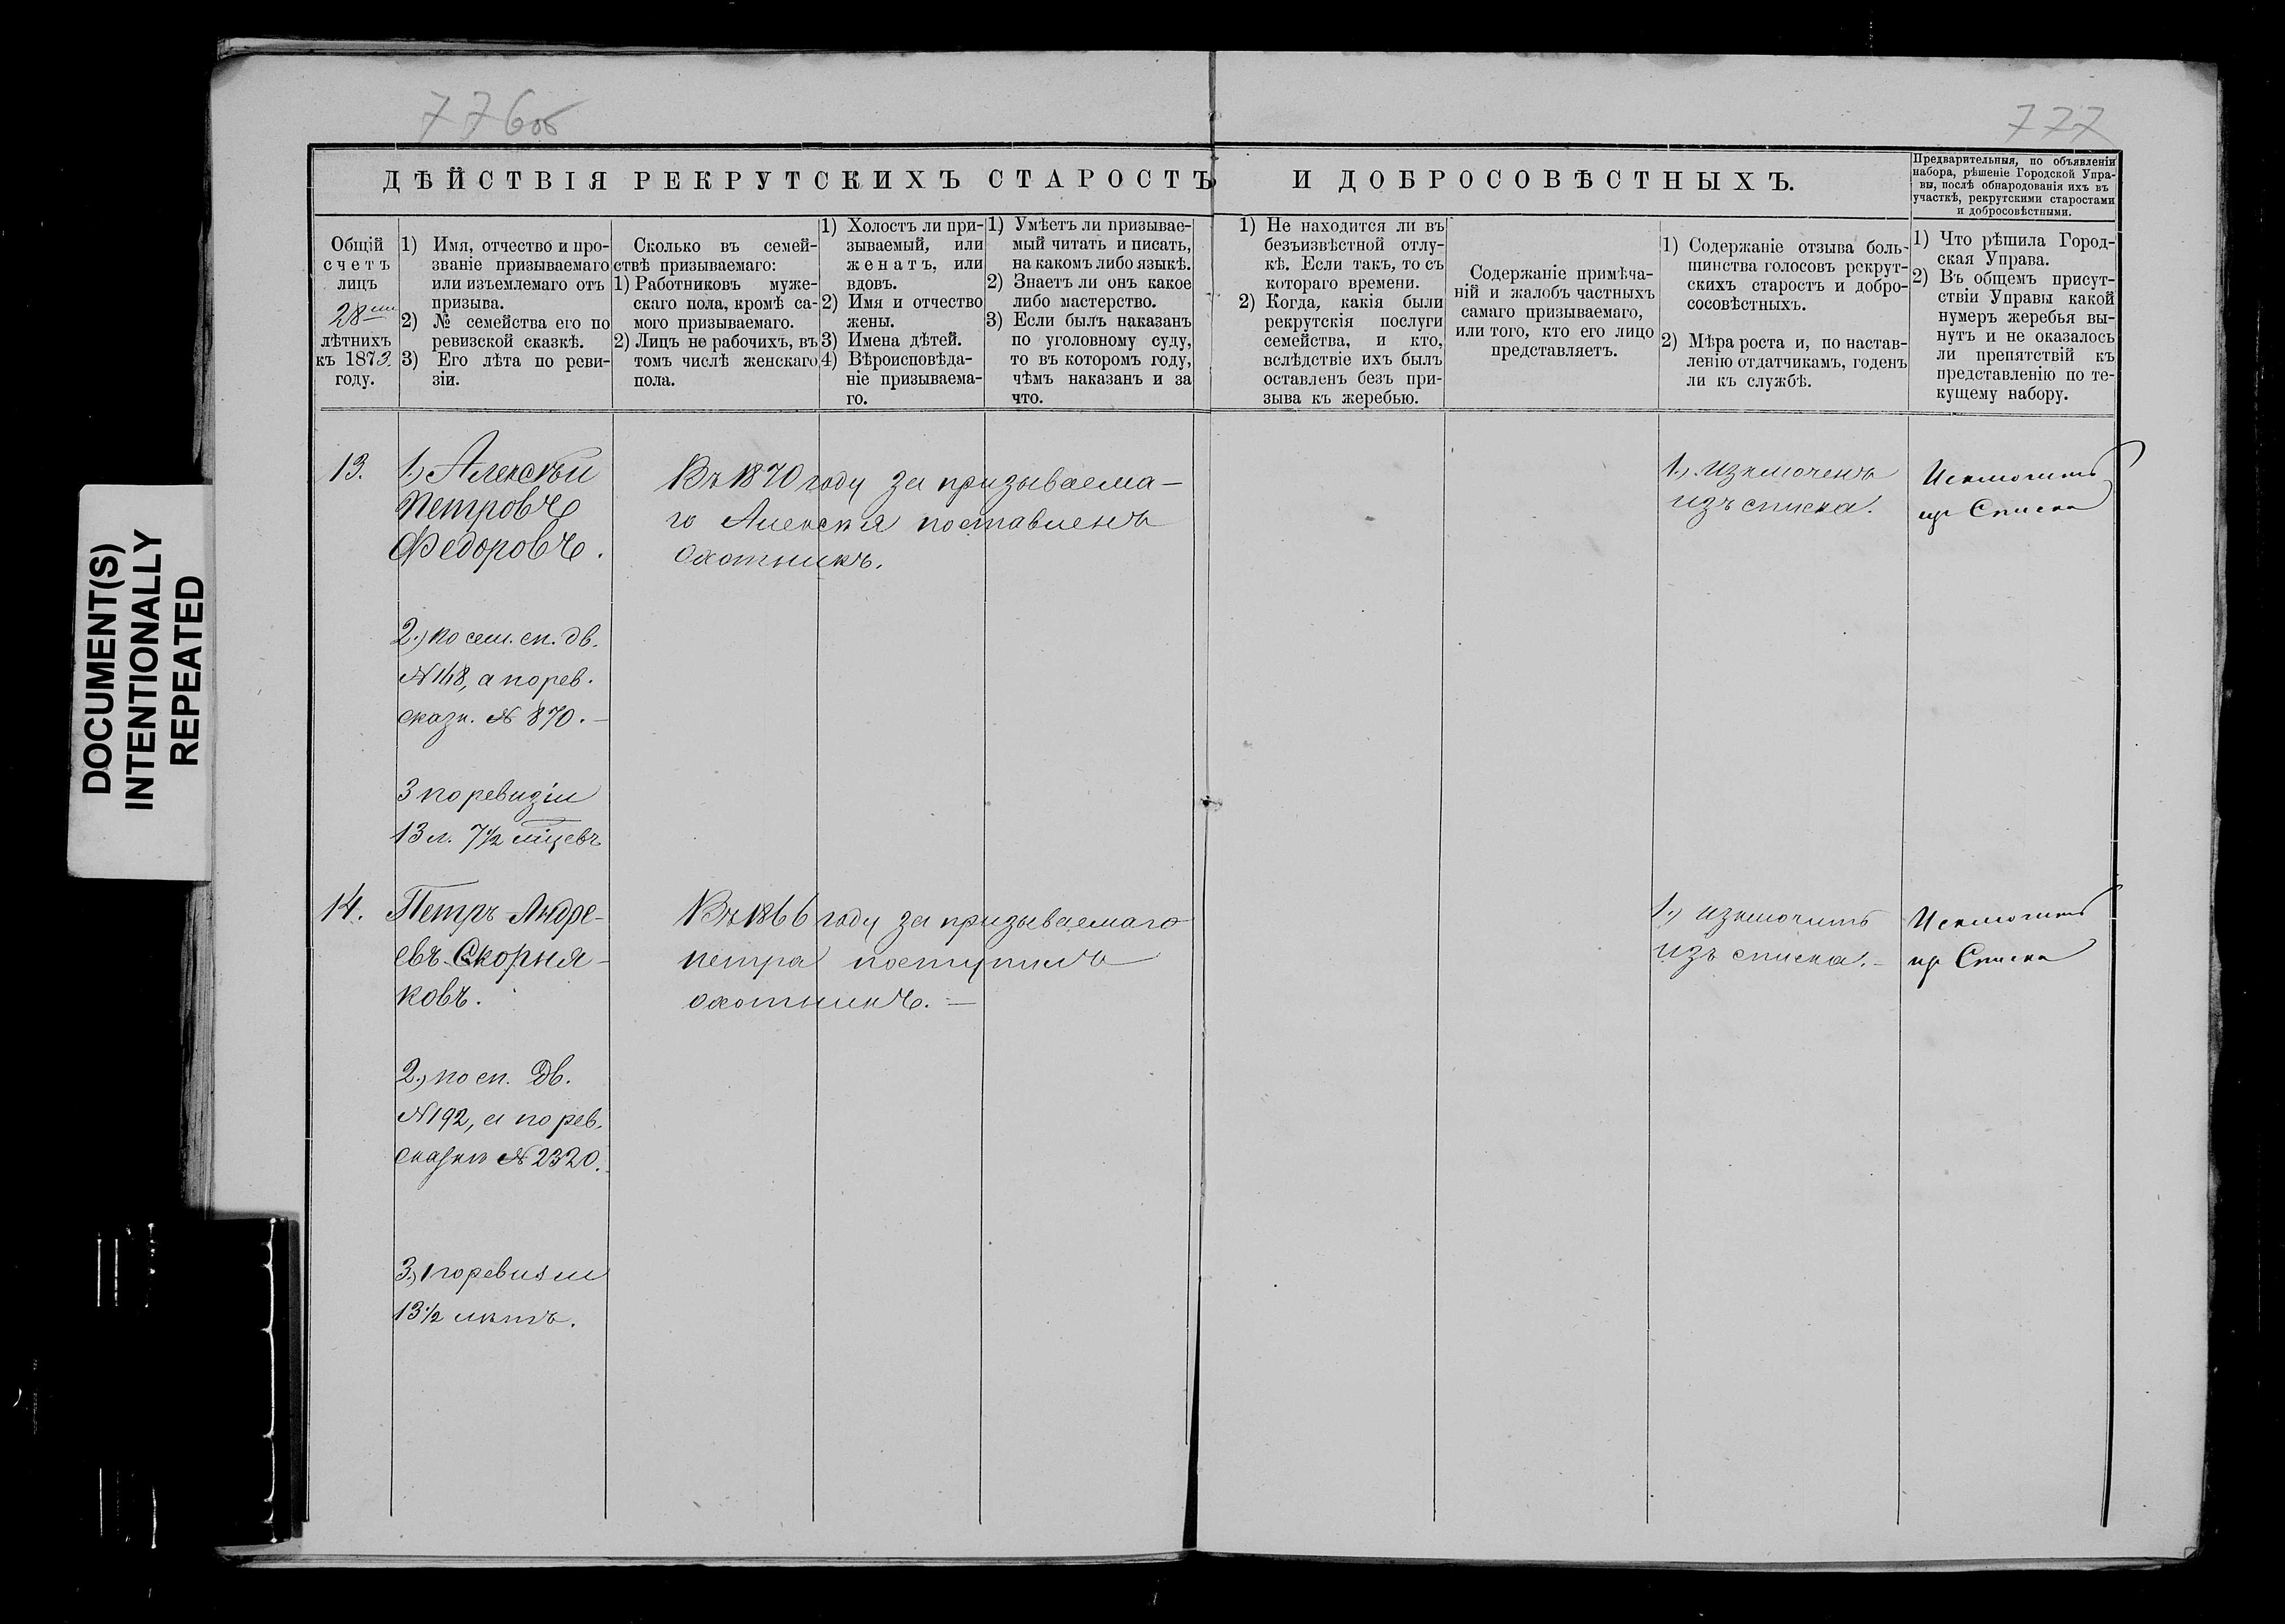 776об
777
ДѢЙСТВІЯ РЕКРУТСКИХЪ СТАРОСТЪ И ДОБРОСОВѢСТНЫХЪ.
Предварительныя, по объявленіи
набора, рѣшеніе Городской Упра-
вы, послѣ обнародованія ихъ въ
участкѣ, рекрутскими старостами
и добросовѣстными.
Общій
счетъ
лицъ
28ми
лѣтнихъ
къ 1873.
году.
1) Имя, отчество и про-
званіе призываемаго
или изъемлемаго отъ
призыва.
2) № семейства его по
ревизской сказкѣ.
3) Его лѣта по реви-
зіи.
Сколько въ семей-
ствѣ призываемаго:
1) Работниковъ муже-
скаго пола, кромѣ са-
мого призываемаго.
2) Лицъ не рабочихъ, въ
томъ числѣ женскаго
пола.
1) Холостъ ли при-
зываемый, или
женатъ, или
вдовъ.
2) Имя и отчество
жены.
3) Имена дѣтей.
4) Вѣроисповѣда-
ніе призываема-
го.
1) Умѣетъ ли призывае-
мый читать и писать,
на какомъ либо языкѣ.
2) Знаетъ ли онъ какое
либо мастерство.
3) Если былъ наказанъ
по уголовному суду,
то въ которомъ году,
чѣмъ наказанъ и за
что.
1) Не находится ли въ
безъизвѣстной отлу-
кѣ. Если такъ, то съ
котораго времени.
2) Когда, какія были
рекрутскія послуги
семейства, и кто,
вслѣдствіе ихъ былъ
оставленъ безъ при-
зыва къ жеребью.
Содержаніе примѣча-
ній и жалобъ частныхъ
самаго призываемаго,
или того, кто его лицо
представляетъ.
1) Содержаніе отзыва боль-
шинства голосовъ рекрут-
скихъ старостъ и добро-
сосовѣстныхъ.
2) Мѣра роста и, по настав-
ленію отдатчикамъ, годенъ
ли къ службѣ.
1) Что рѣшила Город-
ская Управа.
2) Въ общемъ присут-
ствіи Управы какой
нумеръ жеребья вы-
нутъ и не оказалось
ли препятствій къ
представленію по те-
кущему набору.
13.
1.) Алексѣй
Петровъ
Федоровъ.
2.) по сем. сп. дв.
№ 148, а по рев.
сказк. № 870. —
3 по ревизіи
13 л. 7½ мѣсцевъ
Въ 1870 году за призываема-
го Алексѣя поставленъ
охотникъ.
1.) изключенъ
изъ списка.
Исключить
изъ Списка
14.
Петръ Андре-
евъ Скорня-
ковъ.
2.) по сп. Дв.
№ 192, а по рев.
сказкѣ № 2320.
3.) по ревизіи
13½ лѣтъ.
Въ 1866 году за призываемаго
петра поступилъ
охотникъ. —
1.) изключить
изъ списка. —
Исключить
изъ Списка
DOCUMENT(S)
INTENTIONALLY
REPEATED